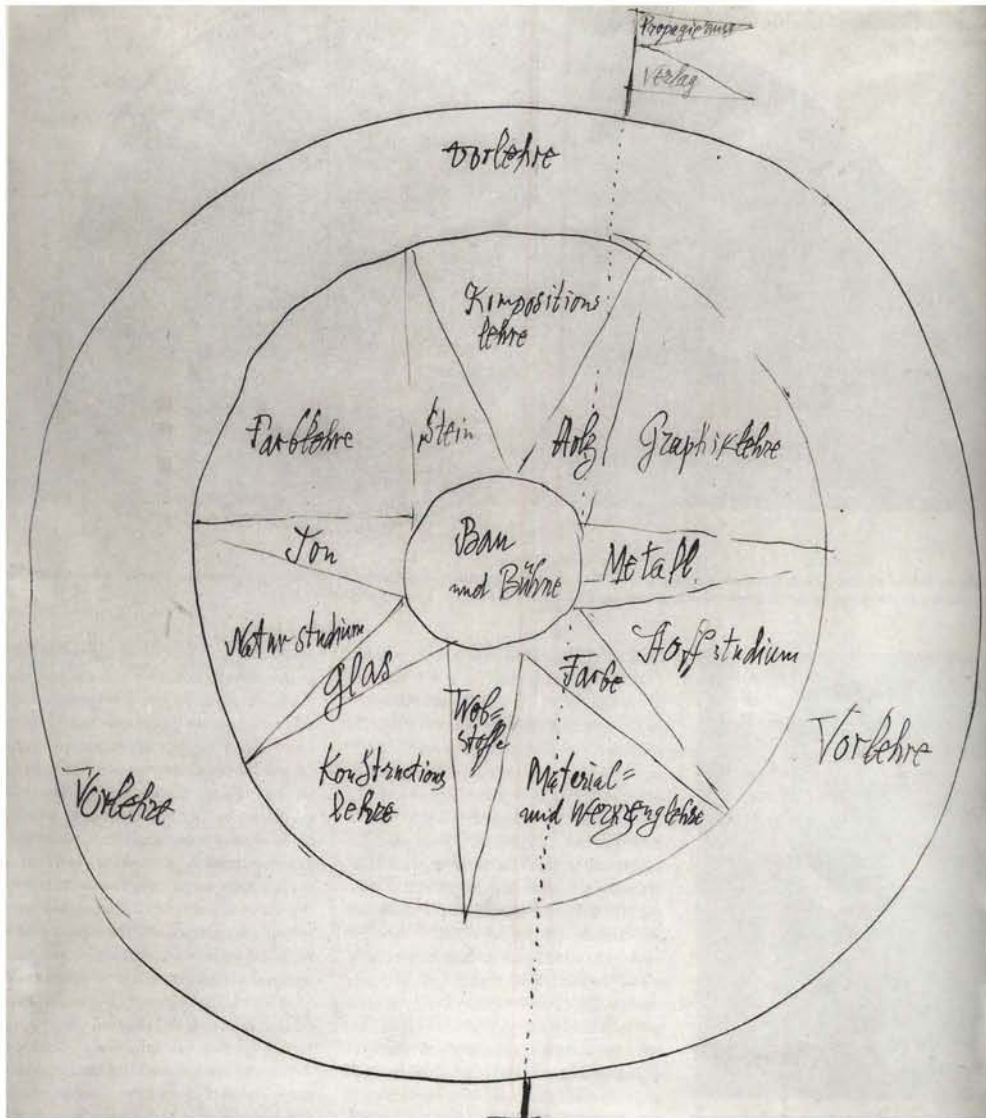 Propagierung
Verlag
Vorlehre
Kompositions
lehre
Farblehre
Stein
Holz
Graphiklehre
Bau
und Bühne
Ton
Metall
Natur studium
Glas
Web=
stoffe
Farbe
Stoff studium
Konstructions
lehre
Material=
und Werkzeuglehre
Vorlehre
Vorlehre